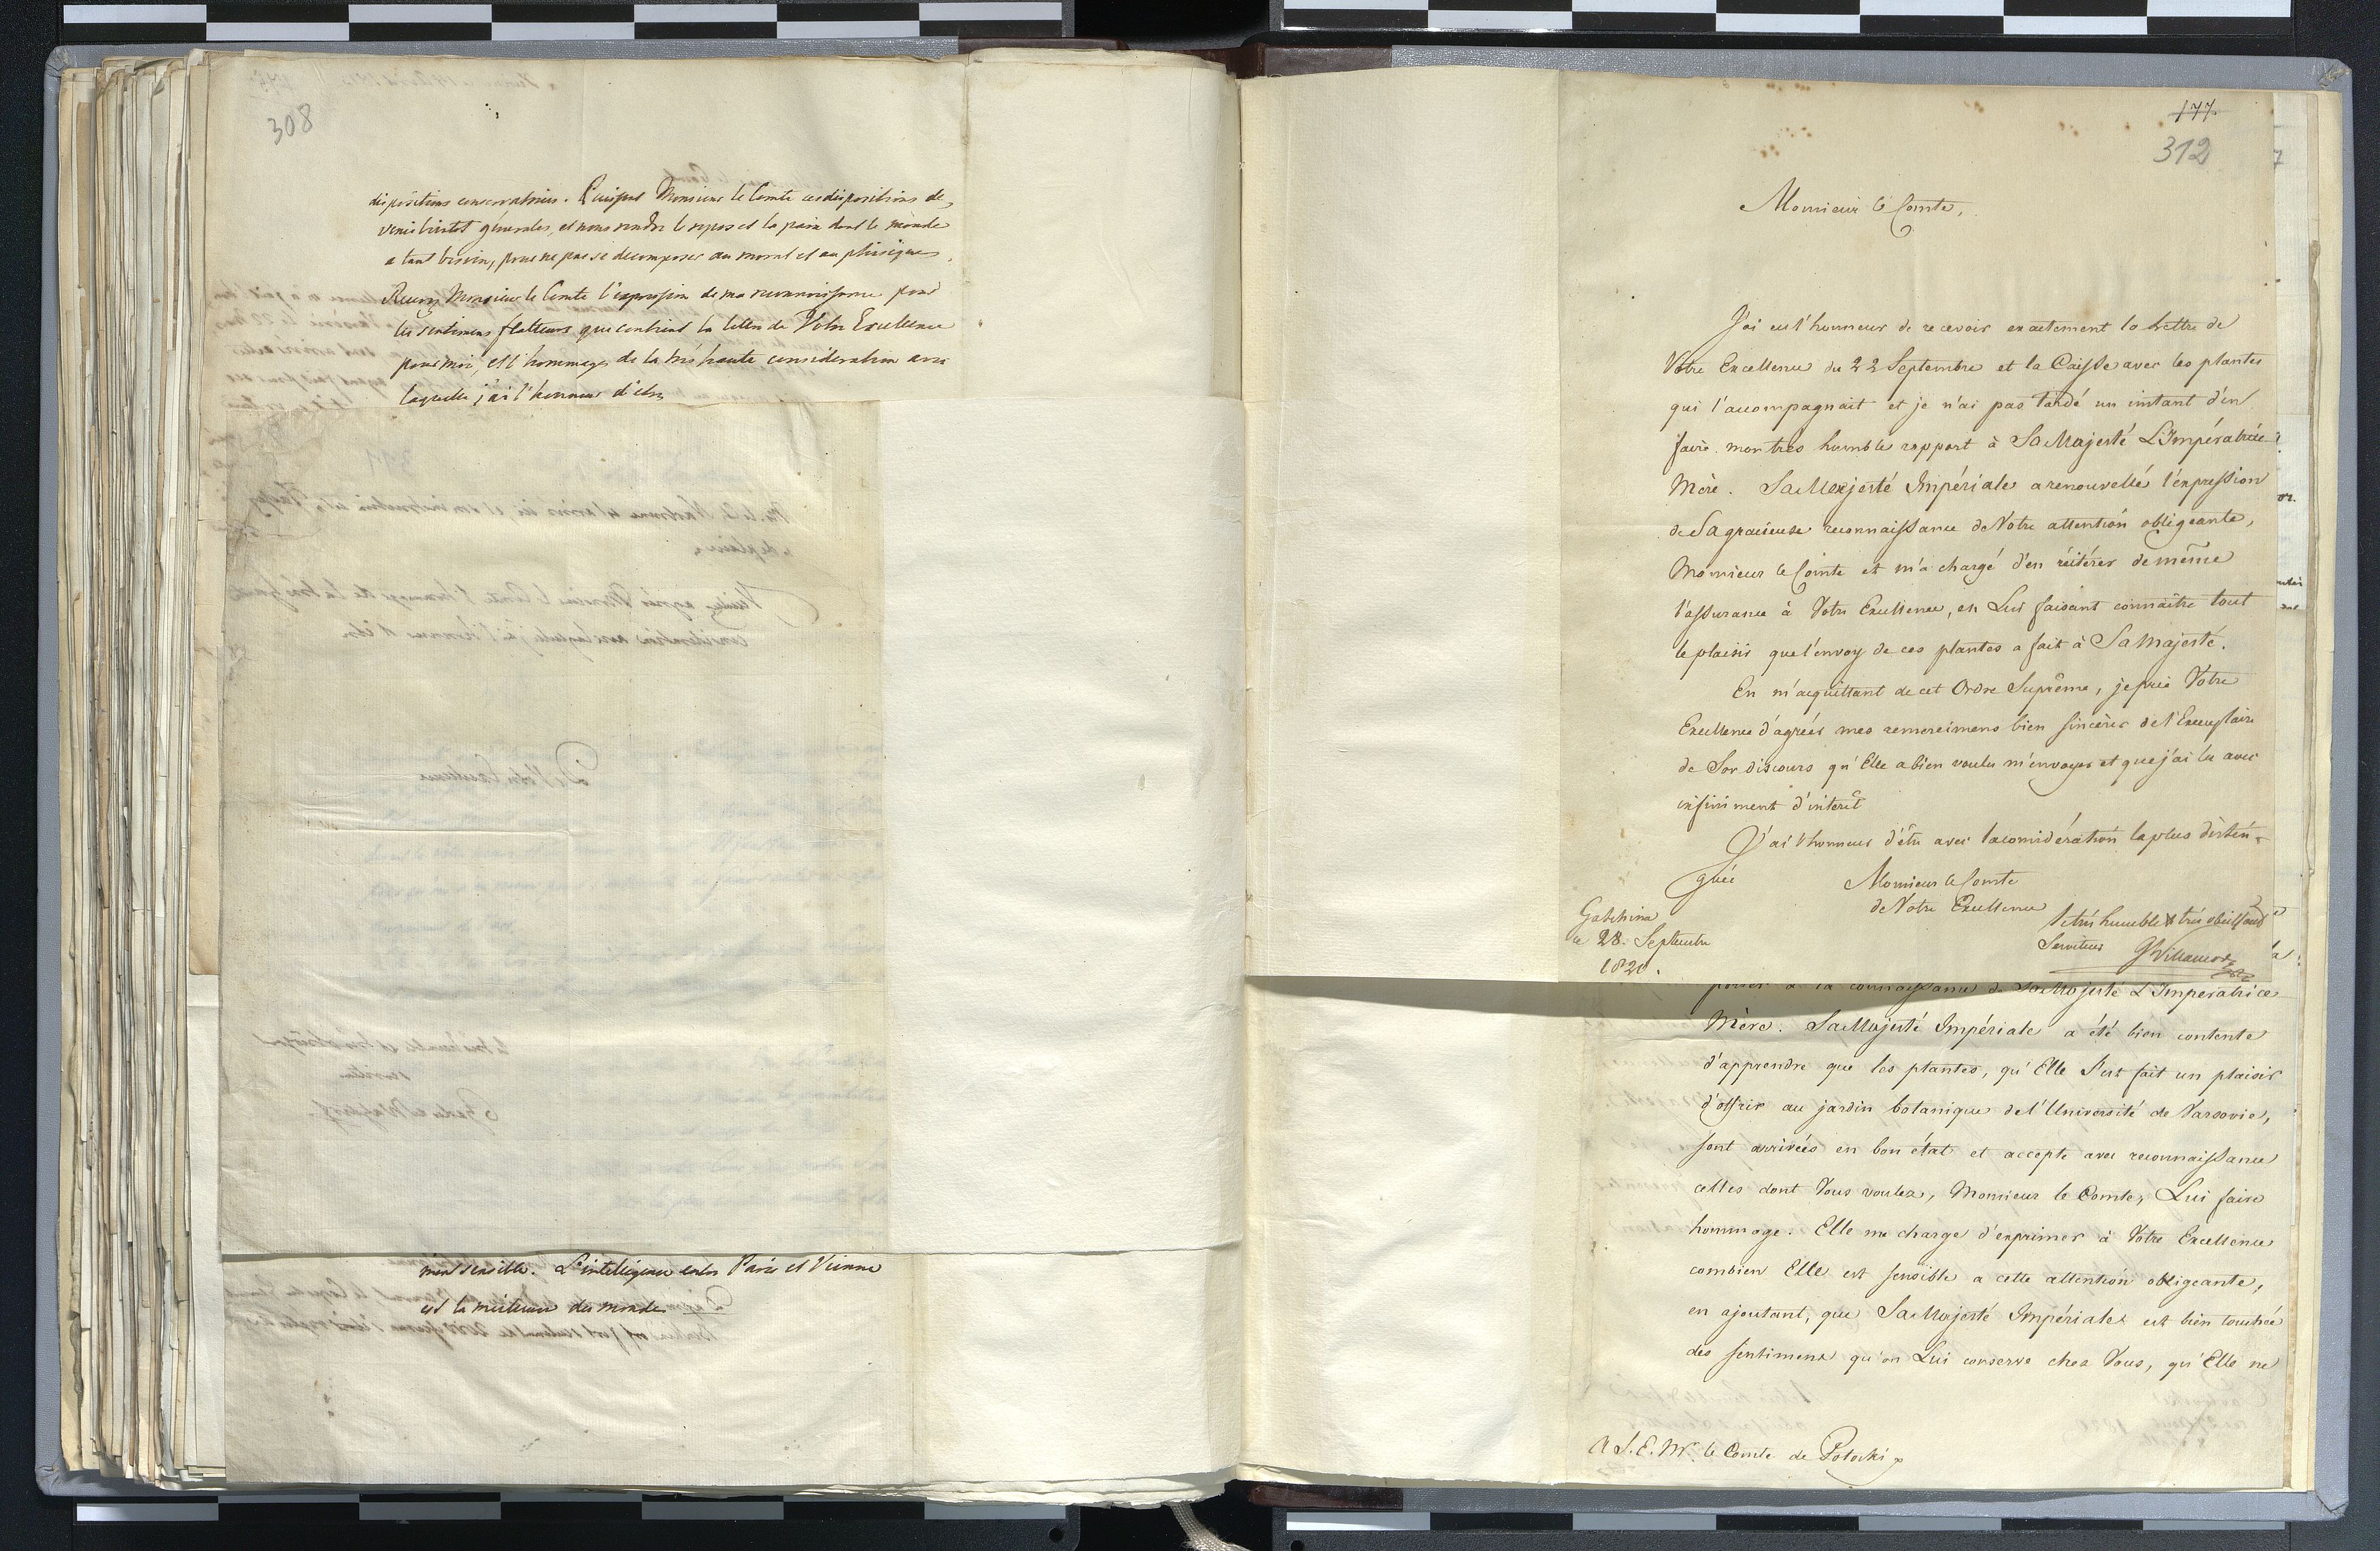 308
dispositions conservatrices. Puissent Monsieur le Comte ces dispositions de,
venir bientot génerales, et nous rendre le repos et la paix dont le monde
a tant besoin, pour ne pas se decomposer au moral et au phisique,
Recevez Monsieur le Comte l'expression de ma reconnoissance pour
les sentimens flatteurs que contient la lettre de Votre Excellence
pour moi, et l'hommage de la très haute consideration avec
laquelle j'ai l'honneur d'etre
sensible. L'intelligence entre Paris et Vienne
est la meilleure du monde
177.
312
Monsieur le Comte,
J'ai eu l'honneur de recevoir exactement la lettre de
Votre Excellence du 22 Septembre et la Caisse avec les plantes
qui l'accompagnait et je n'ai pas tardé un instant d'en
faire mon très humble rapport à Sa Majesté L'Impératrice
Mère. Sa Majesté Impériale a renouvellé l'expression
de Sa gracieuse reconnaissance de Votre attention obligeante,
Monsieur le Comte et m'a chargé d'en réitérer de même
l'assurance à Votre Excellence, en Lui faisant connaître tout
le plaisir que l'envoy de ces plantes a fait à Sa Majesté.
En m'acquittant de cet Ordre Suprême, je prie Votre
Excellence d'agréer mes remercimens bien sincères de l'Exemplaire
de Son discours qu'Elle a bien voulu m'envoyer et que j'ai lu avec
infiniment d'interêt
J'ai l'honneur d'être avec la considération la plus distin-
guée
Monsieur le Comte
de Votre Excellence
le très humble & très obéissant
Serviteur GVillamov
Gatschina
le 28. Septembre
1820.
porter à la connaissance de Sa Majesté L'Impératrice
Mère. Sa Majesté Impériale a été bien contente
d'apprendre que les plantes, qu'Elle s'est fait un plaisir
d'offrir au jardin botanique de l'Université de Varsovie,
sont arrivées en bon état et accepte avec reconnaissance
celles dont Vous voulez, Monsieur le Comte, Lui faire
hommage. Elle me charge d'exprimer à Votre Excellence
combien Elle est sensible a cette attention obligeante,
en ajoutant, que Sa Majesté Impériale est bien touchée
des sentimens qu'on Lui conserve chez Vous, qu'Elle ne
A S. E. Mr. le Comte de Potocki